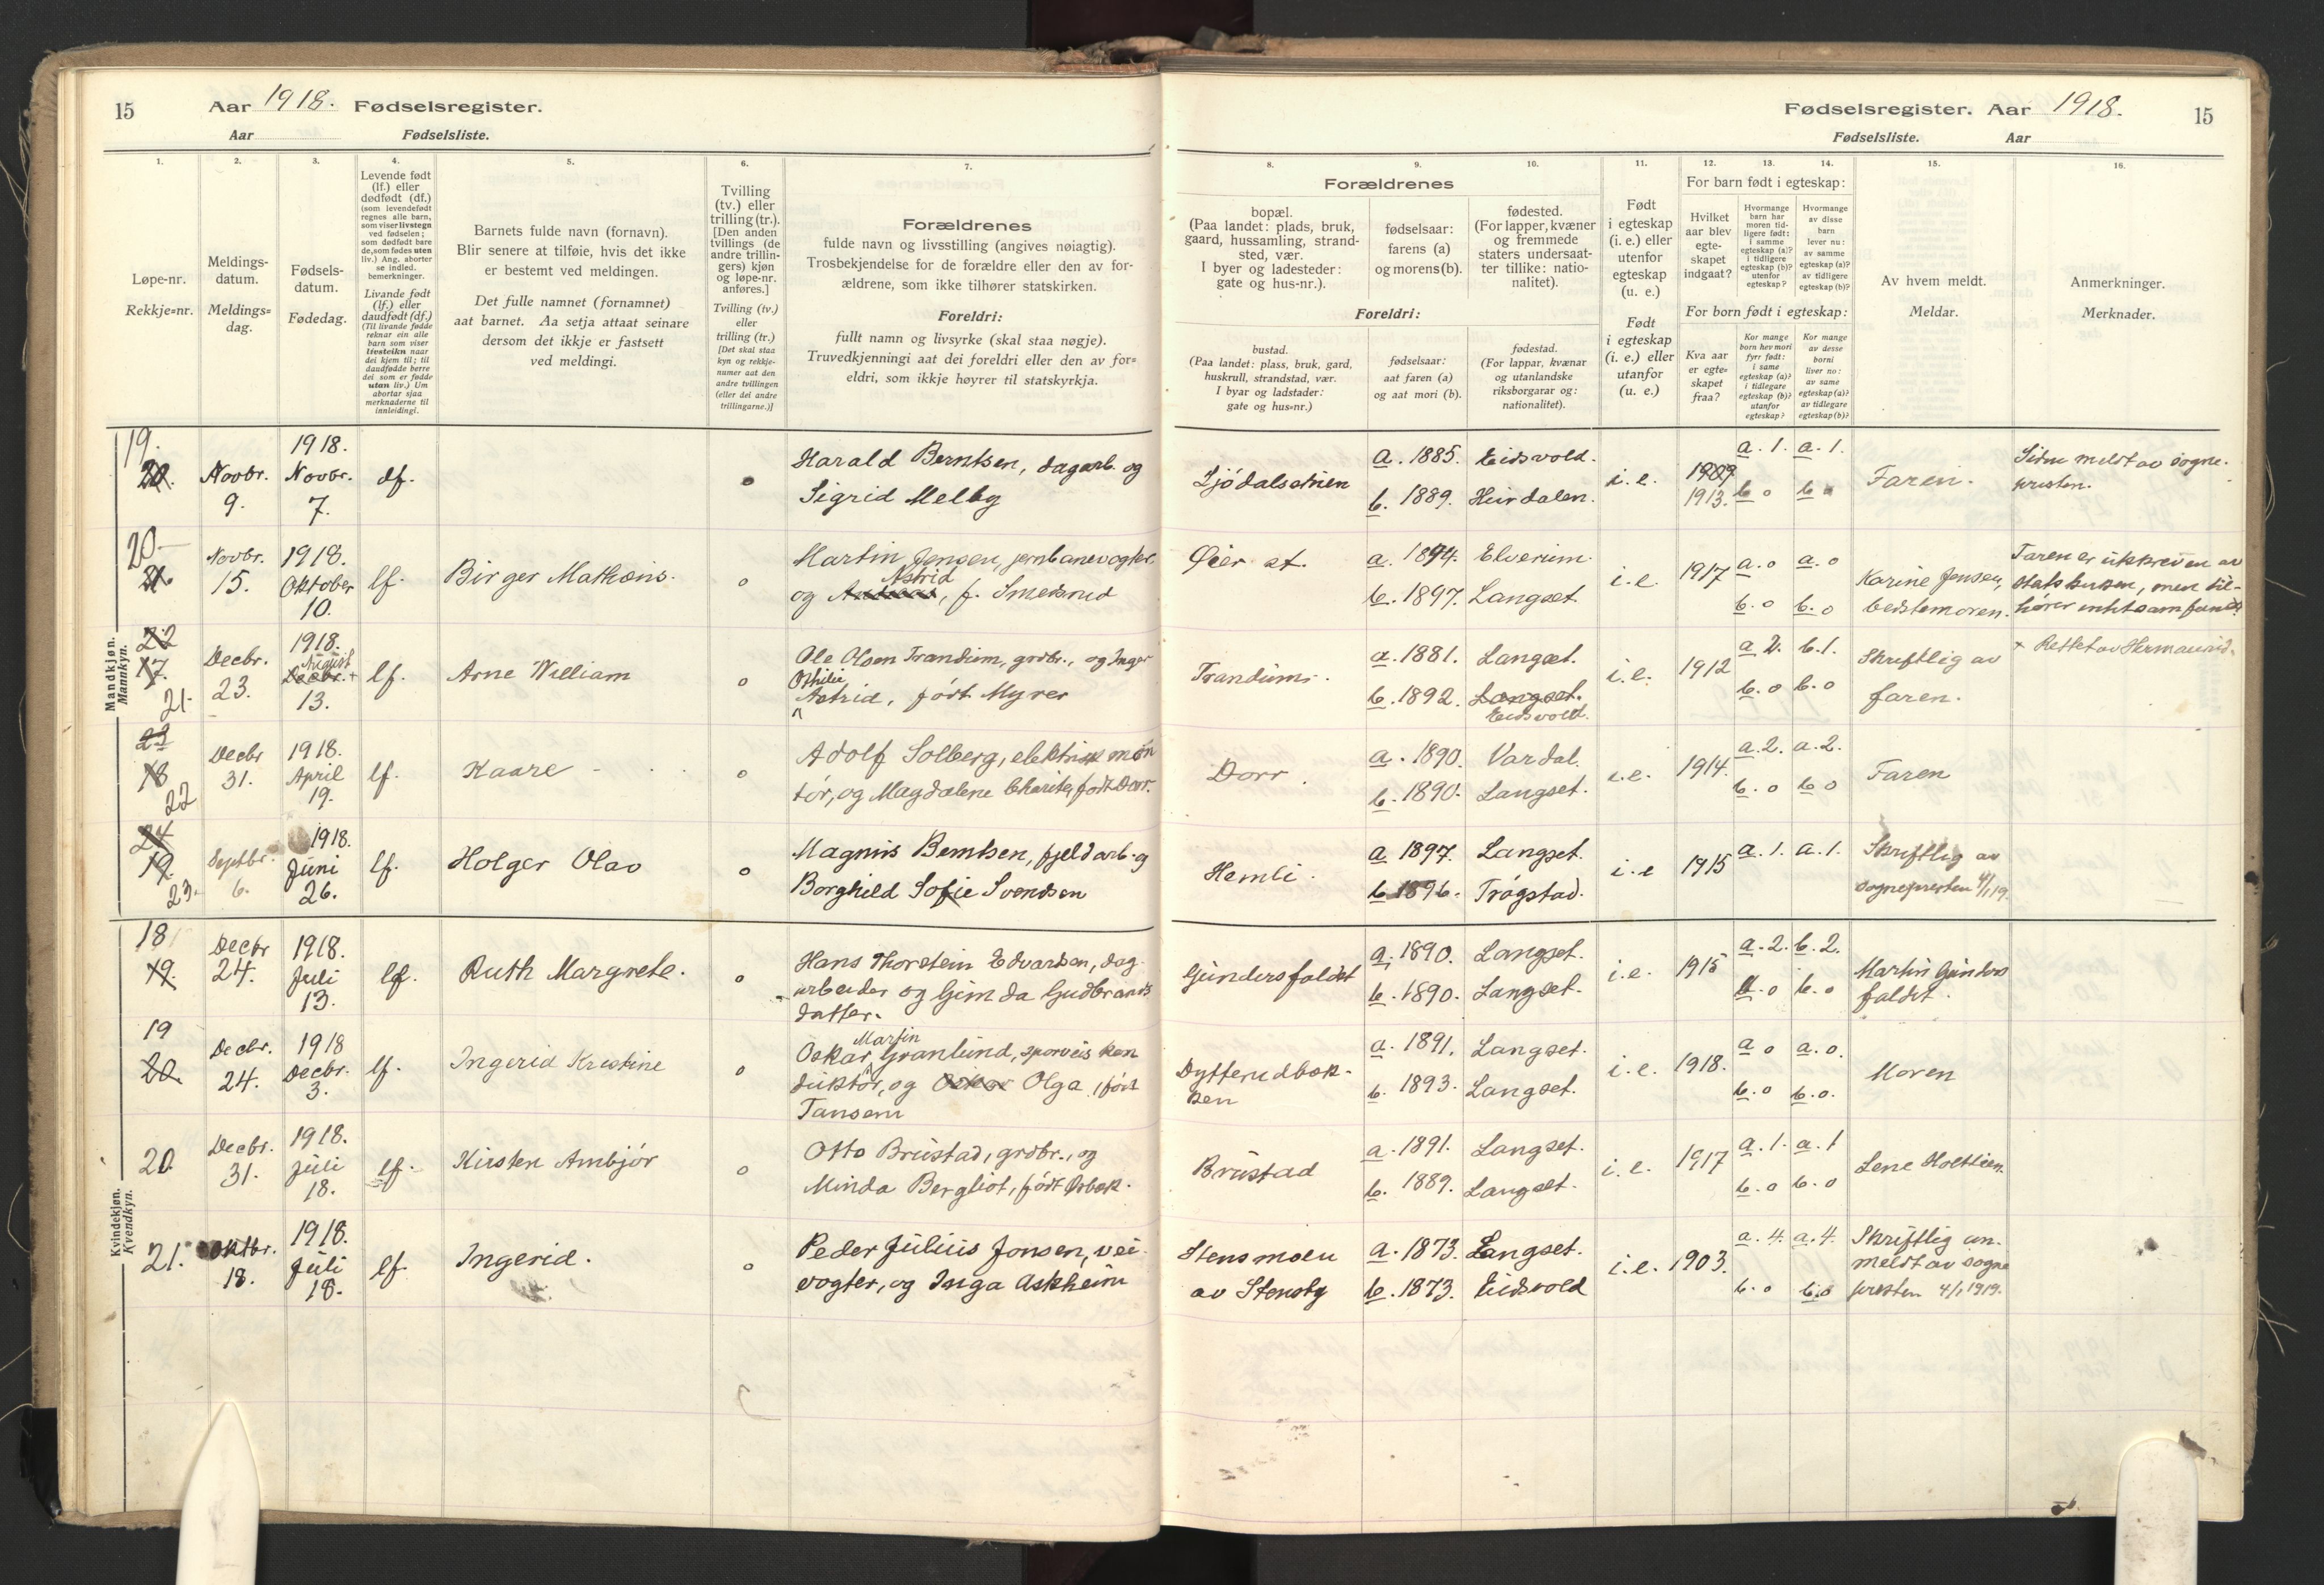 15 Aar 1918. Fødselsregister.
Aar Fødselsliste.
Fødselsregister. Aar 1918. 15
Fødselsliste. Aar
1. 2. 3. 4. 5. 6. 7.
Løpe-nr.
Rekkje=nr.
Meldings-
datum.
Meldings=
dag.
Fødsels-
datum.
Fødedag.
Levende født
(lf.) eller
dødfødt (df.)
(som levendefødt
regnes alle barn,
som viser livstegn
ved fødselen;
som dødfødt bare
de, som fødes uten
liv.) Ang. aborter
se indled.
bemerkninger.
Livande født
(lf.) eller
daudfødt (df.)
(Til livande fødde
reknar ein alle
barn som viser
livsteikn naar
dei kjem til; til
daudfødde berre
dei som er fødde
utan liv.) Um
abortar sjaa
merknaderne til
innleidingi.
Barnets fulde navn (fornavn).
Blir senere at tilføie, hvis det ikke
er bestemt ved meldingen.
Det fulle namnet (fornamnet)
aat barnet. Aa setja attaat seinare
dersom det ikkje er fastsett
ved meldingi.
Tvilling
(tv.) eller
trilling (tr.).
[Den anden
tvillings (de
andre trillin-
gers) kjøn
og løpe-nr.
anføres.]
Tvilling (tv.)
eller
trilling (tr.)
[Det skal staa
kyn og rekkje-
numer aat den
andre tvillingen
(eller dei andre
trillingarne.)]
Forældrenes
fulde navn og livsstilling (angives nøiagtig).
Trosbekjendelse for de forældre eller den av for-
ældrene, som ikke tilhører statskirken.
Foreldri:
fullt namn og livsyrke (skal staa nøgje).
Truvedkjenningi aat dei foreldri eller den av for=
eldri, som ikkje høyrer til statskyrkja.
8. 9. 10. 11. 12. 13. 14. 15. 16.
Forældrenes
bopæl.
(Paa landet: plads, bruk,
gaard, hussamling, strand-
sted, vær.
I byer og ladesteder:
gate og hus-nr.).
fødselsaar:
farens (a)
og morens (b).
fødested.
(For lapper, kvæner
og fremmede
staters undersaat-
ter tillike: natio-
nalitet).
Foreldri:
bustad.
(Paa landet: plass, bruk, gard,
huskrull, strandstad, vær.
I byar og ladstader:
gate og hus=nr.)
fødselsaar:
aat faren (a)
og aat mori (b).
fødestad.
(For lappar, kvænar
og utanlandske
riksborgarar og:
nationalitet).
Født
i egteskap
(i. e.) eller
utenfor
egteskap
(u. e.)
Født
i egteskap
(i. e.) eller
utanfor
(u. e.)
For barn født i egteskap:
Hvilket
aar blev
egte-
skapet
indgaat?
Hvormange
barn har
moren tid-
ligere født:
i samme
egteskap (a)?
i tidligere
egteskap (b)?
utenfor
egteskap?
Hvormange
av disse
barn
lever nu:
av samme
egteskap (a)?
av tidligere
egteskap (b)?
For born født i egteskap:
Kva aar
er egte=
skapet
fraa?
Kor mange
born hev mori
fyrr født:
i same
egteskap (a)?
i tidlegare
egteskap (b)?
utanfor
egteskap?
Kor mange
av desse
borni
liver no:
av same
egteskap (a)?
av tidlegare
egteskap (b)?
Av hvem meldt.
Meldar.
Anmerkninger.
Merknader.
Mandkjøn.
Mannkyn.
19.
20. Novbr. 9. 1918. Novbr. 7. df. o Harald Berntsen, dagarb. og
Sigrid Melby
a. 1885. Eidsvold. i.e. 1909 a. 1. a. 1. Faren. Sidne meldt av sogne-
b. 1889. 1913. b. o b. o presten.
20
21 Novbr. 15. 1918. Oktober 10. lf. Birger Mathæus. o Martin Jensen, jernbanevogter,
Astrid
og Andreas, f. Smedsrud
Øier st. a. 1894. Elverum. i.e. 1917 a. o a. o Karine Jensen, Faren er utskreven av
b. 1897. Langset. b. o b. o bedstemoren. statskirken, men til-
hører intet samfund
22
17. 21. Decbr. 23. 1918. August Decbr. + 13. lf. Arne William o Ole Olsen Trandum, grdbr., og Inger
Othilie
Astrid, født Myrer
Trandum. a. 1881. Langset. i.e. 1912 a 2. b. 1. Skriftlig av + Rettet av
b. 1892. Langset. b. o b. o faren.
Eidsvold.
23
18 22 Decbr 31. 1918. April 19. lf. Kaare o Adolf Solberg, elektrisk mon
tør, og Magdalene Charite, født Dorr.
Dorr. a. 1890. Vardal. i.e. 1914. a. 2. a. 2. Faren
b. 1890. Langset. b. o b o
24
19. 23. Septbr. 6. 1918. Juni 26. lf. Holger Olav o Magnus Berntsen, fjeldarb. og
Borghild Sofie Svendsen
Hemli. a 1897. Langset. i.e 1915 a. 1. a. 1. Skriftlig av
b 1896. Trøgstad. sognepresten 4/1 19.
Kvindekjøn.
Kvendkyn.
18
19. Decbr 24. 1918. Juli 13. lf. Ruth Margrete. o Hans Thorstein Edvardsen, dag-
arbeider og Gunda Gudbrands
datter.
Gundersfaldet a. 1890. Langset. i.e. 1915 a. 2. b. 2. Martin Gunders
b. 1890. Langset. b. o b. o faldet.
19
20. Decbr. 24. 1918 Decbr. 3. lf. Ingerid Kristine o Martin
Oskar Granlund, sporveis kon
duktør, og Oskar Olga, født
Tansem
Dytterudbak-
ken a. 1891. Langset. i.e. 1918. a o a. o. Moren
b. 1893. Langset. b. o b. o.
20. Decbr. 31. 1918. Juli 18. lf. Kirsten Ambjør o Otto Brustad, grdbr., og
Minda Bergliot, født
Brustad a. 1891. Langset. i.e. 1917 a. 1. a. 1 Lene Holtlien
b. 1889. Langset. b. o b. o
21. Oktbr. 18. 1918. Juli 18. lf. Ingerid. o Peder Julius Jonsen, vei-
vogter, og Inga Askheim
Stensmoen a. 1873. Langset. i.e. 1903. a. 4. a. 4. Skriftlig an-
av Stensby b. 1873. Eidsvold b. o b. o meldt av sogne
presten 4/1 1919.